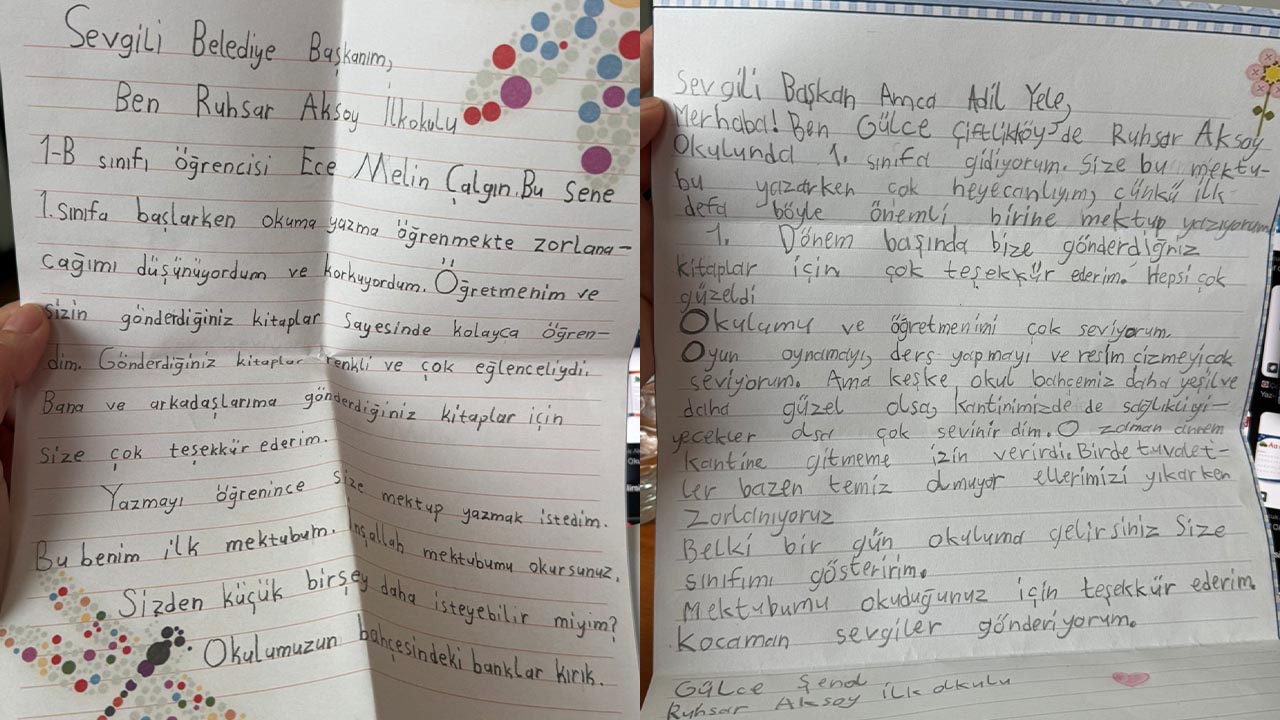 Sevgili Belediye Başkanım,
Ben Ruhsar Aksoy İlkokulu
1-B sınıfı öğrencisi Ece Melin Çalgın. Bu sene
1. sınıfa başlarken okuma yazma öğrenmekte zorlana-
cağımı düşünüyordum ve korkuyordum. Öğretmenim ve
sizin gönderdiğiniz kitaplar sayesinde kolayca öğren-
dim. Gönderdiğiniz kitaplar renkli ve çok eğlenceliydi.
Bana ve arkadaşlarıma gönderdiğiniz kitaplar için
size çok teşekkür ederim.
Yazmayı öğrenince size mektup yazmak istedim.
Bu benim ilk mektubum. İnşallah mektubumu okursunuz.
Sizden küçük birşey daha isteyebilir miyim?
Okulumuzun bahçesindeki banklar kırık.
Sevgili Başkan Amca Adil Yele,
Merhaba! Ben Gülce Çiftlikköy'de Ruhsar Aksoy
Okulunda 1. sınıfa gidiyorum. Size bu mektu-
bu yazarken çok heyecanlıyım, çünkü ilk
defa böyle önemli birine mektup yazıyorum
1. Dönem başında bize gönderdiğniz
kitaplar için çok teşekkür ederim. Hepsi çok
güzeldi
Okulumu ve öğretmenimi çok seviyorum.
Oyun oynamayı, ders yapmayı ve resim çizmeyi çok
seviyorum. Ama keşke okul bahçemiz daha yeşil ve
daha güzel olsa, kantinimizde de sağlıklı yi-
yecekler olsa çok sevinirdim. O zaman annem
kantine gitmeme izin verirdi. Birde tuvalet-
ler bazen temiz olmuyor ellerimizi yıkarken
zorlanıyoruz
Belki bir gün okuluma gelirsiniz Size
sınıfımı gösteririm.
Mektubumu okuduğunuz için teşekkür ederim.
Kocaman sevgiler gönderiyorum.
Gülce Şena
Ruhsar Aksoy ilk okulu